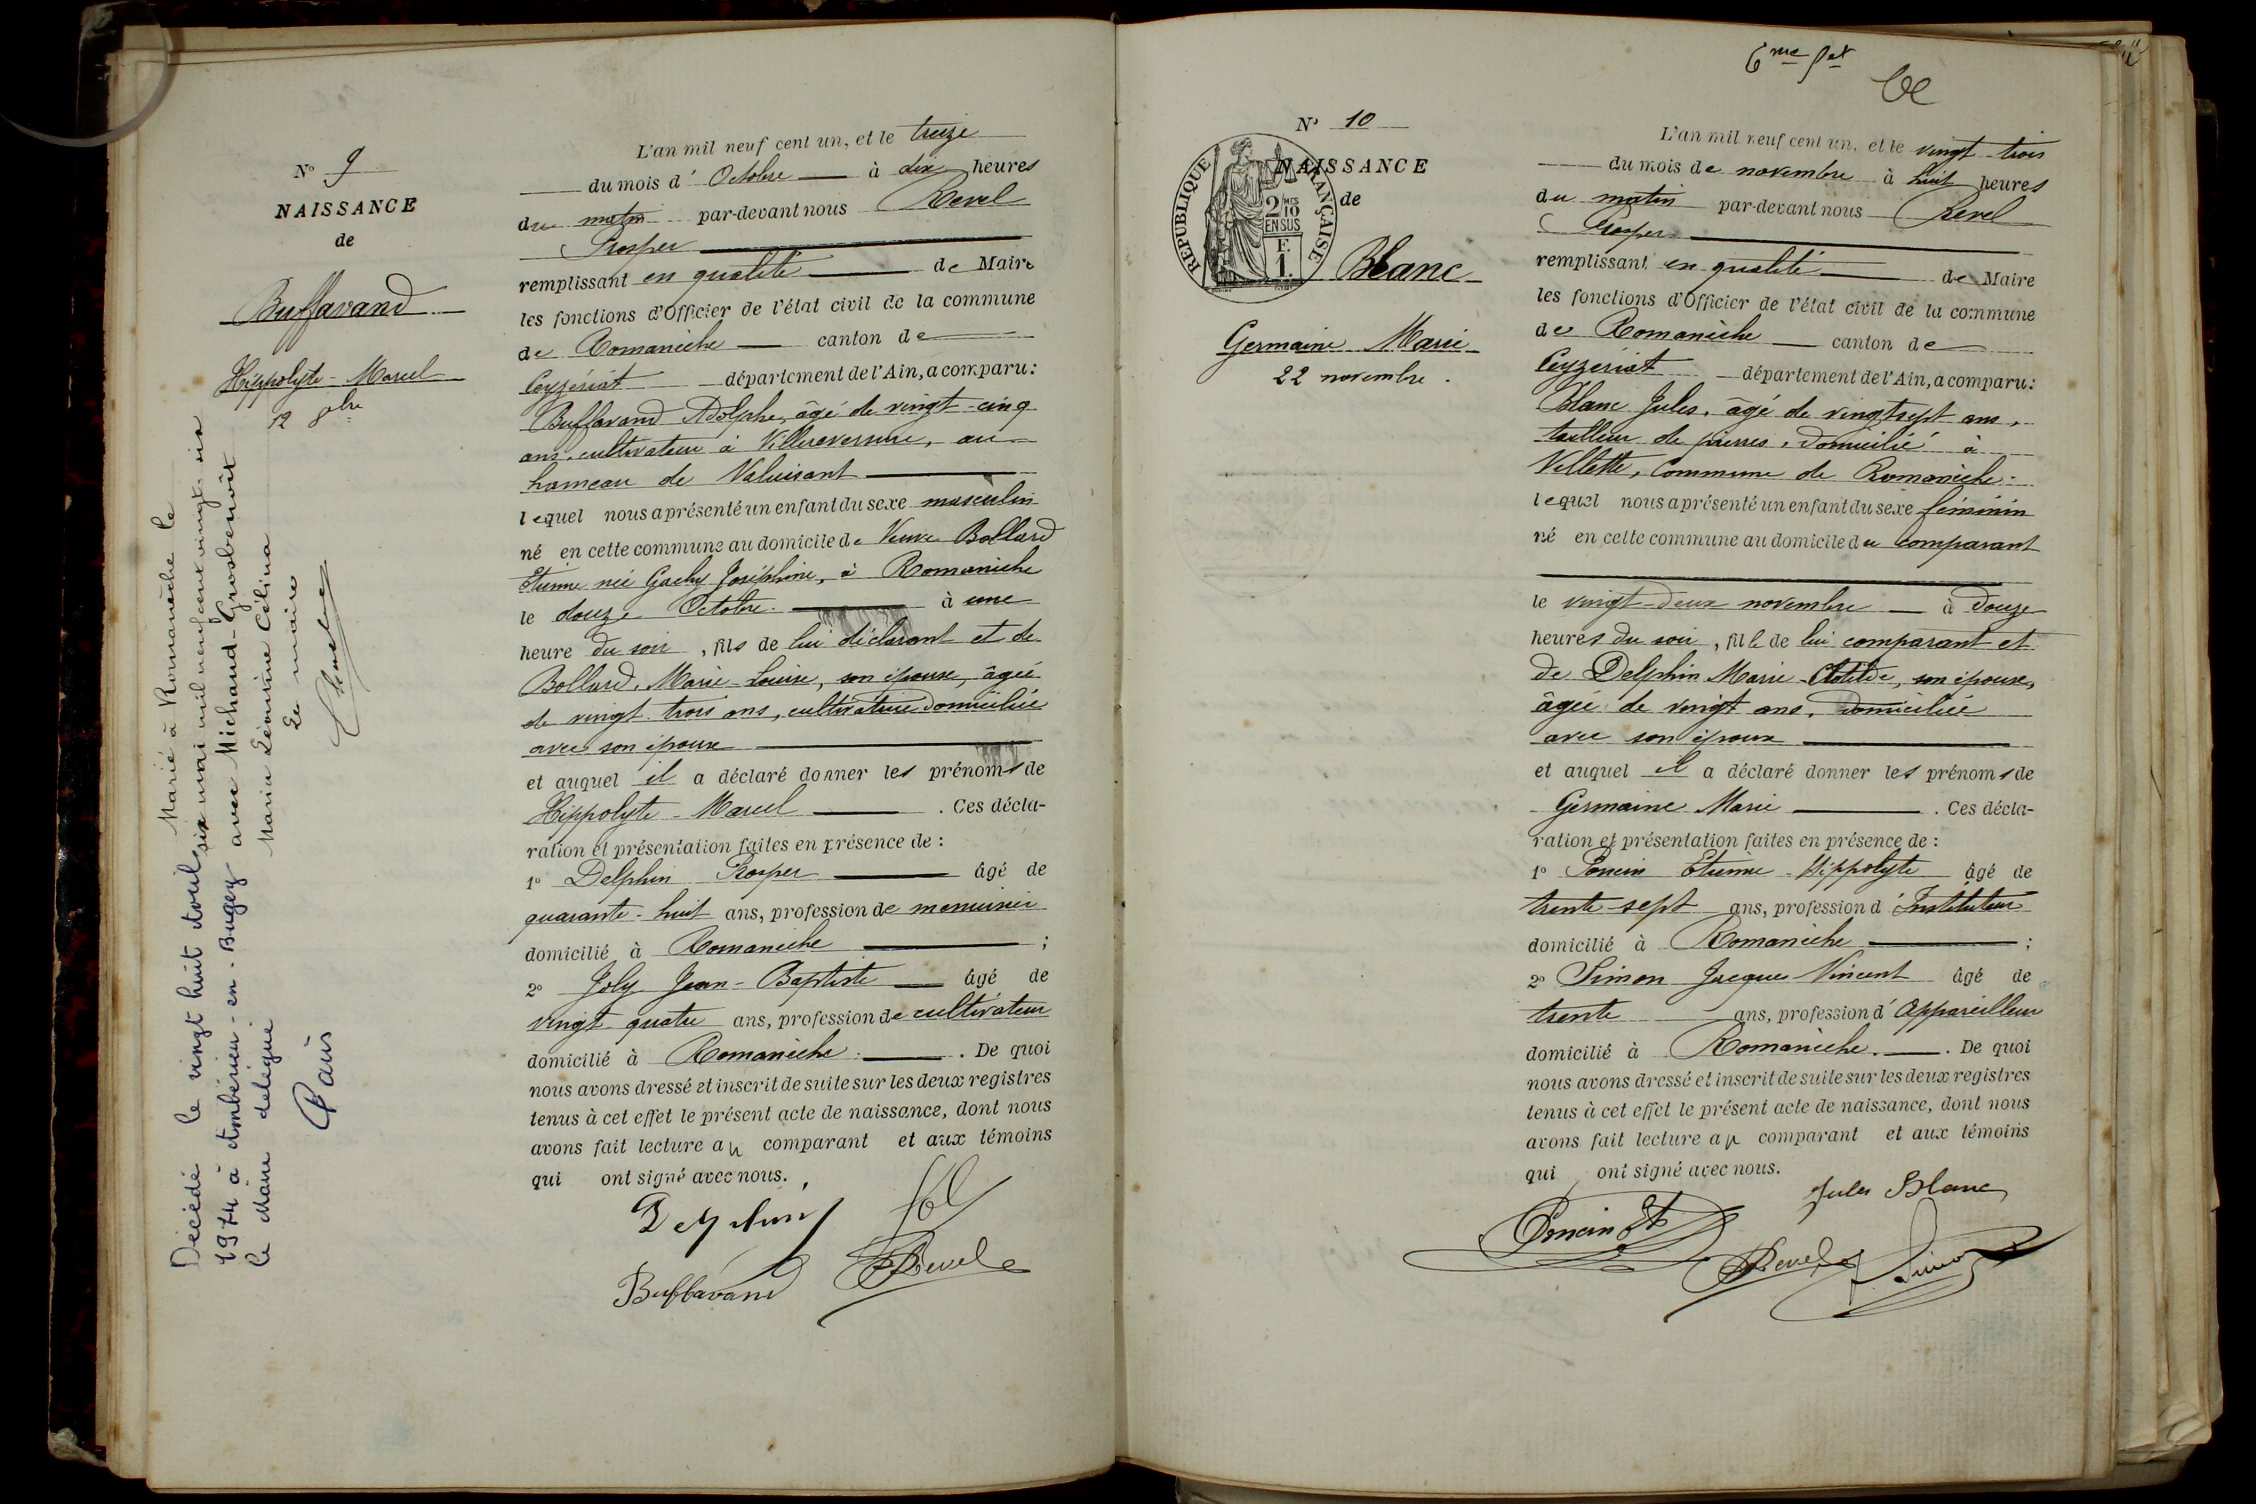 N° 9
NAISSANCE
de
Buffavand
Hippolyte - Marcel
12 8bre
Marié à Romanèche le
six mai mil neuf cent vingt-six
avec Michaud-Grosbenoit
Maria Léonine Célina
Le maire
Décédé le vingt huit Aout
1974 à Ambérieu-en-Bugey
le Maire délégué
L'an mil neuf cent un, et le treize
du mois d' Octobre à dix heures
du matin par-devant nous Revel
Prosper
remplissant en qualité de Maire
les fonctions d'Officier de l'état civil de la commune
de Romanèche canton de
Ceyzériat département de l'Ain, a comparu:
Buffavand Adolphe, âgé de vingt-cinq
ans, cultivateur à Villereversure, au
hameau de Valuisant
lequel nous a présenté un enfant du sexe masculin
né en cette commune au domicile de Veuve Bollard
Etienne née Gachy Joséphine, à Romanèche
le douze Octobre à une
heure du soir, fils de lui déclarant et de
Bollard, Marie-Louise, son épouse, âgée
de vingt-trois ans, cultivatrice domiciliée
avec son époux
et auquel il a déclaré donner les prénoms de
Hippolyte - Marcel . Ces décla-
ration et présentation faites en présence de :
1° Delphin Prosper âgé de
quarante-huit ans, profession de menuisier
domicilié à Romanèche ;
2° Joly Jean-Baptiste âgé de
vingt-quatre ans, profession de cultivateur
domicilié à Romanèche . De quoi
nous avons dressé et inscrit de suite sur les deux registres
tenus à cet effet le présent acte de naissance, dont nous
avons fait lecture au comparant et aux témoins
qui ont signé avec nous.
Delphin
Buffavand Revel
6me
N° 10
NAISSANCE
de
RÉPUBLIQUE FRANÇAISE
2 MES
10
EN SUS
F.
1.
Blanc
Germaine Marie
22 novembre.
L'an mil neuf cent un, et le vingt-trois
du mois de novembre à huit heures
du matin par-devant nous Revel
Prosper
remplissant en qualité de Maire
les fonctions d'Officier de l'état civil de la commune
de Romanèche canton de
Ceyzériat département de l'Ain, a comparu:
Blanc Jules, âgé de vingt sept ans,
tailleur de pierres, domicilié à
Villette, Commune de Romanèche.
lequel nous a présenté un enfant du sexe féminin
né en cette commune au domicile du comparant
le vingt-deux novembre à douze
heures du soir, fille de lui comparant et
de Delphin Marie-Clotilde, son épouse,
âgée de vingt ans, domiciliée
avec son époux
et auquel il a déclaré donner les prénoms de
Germaine Marie . Ces décla-
ration et présentation faites en présence de :
1° Poncin Etienne-Hippolyte âgé de
trente-sept ans, profession d'Instituteur
domicilié à Romanèche ;
2° Simon Jacques Vincent âgé de
trente ans, profession d'Appareilleur
domicilié à Romanèche. . De quoi
nous avons dressé et inscrit de suite sur les deux registres
tenus à cet effet le présent acte de naissance, dont nous
avons fait lecture au comparant et aux témoins
qui ont signé avec nous.
Jules Blanc
Poncin Et
Revel Simon